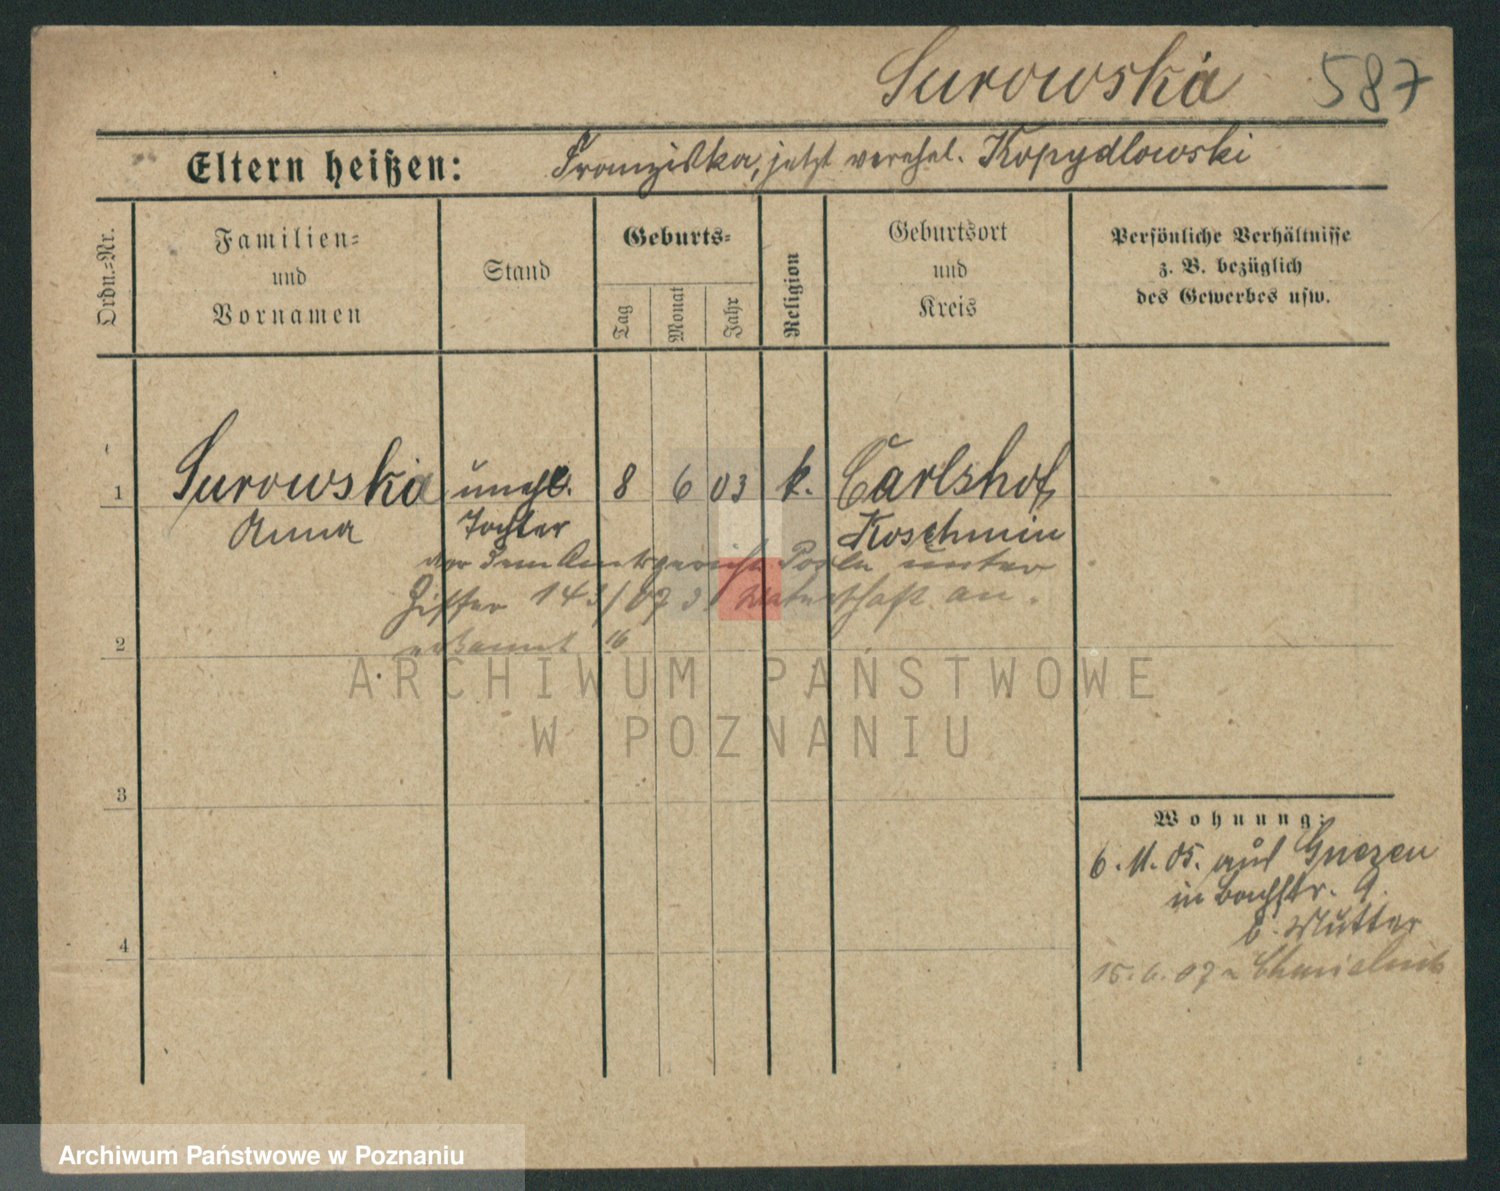 Surowska 587
Eltern heißen: Franziska, jetzt verehel. Kopydlowski
Ordn.-Nr.
Familien-
und
Vornamen
Stand
Geburts-
Tag
Monat
Jahr
Religion
Geburtsort
und
Kreis
Persönliche Verhältnisse
z. B. bezüglich
des Gewerbes usw.
1 Surowska unehl. 8 6 03 k. Carlshof
Anna Tochter Koschmin
vor dem Amtsgericht Posen unter
Ziffer 143/07 3 Vaterschaft an.
erkannt
2
ARCHIWUM PAŃSTWOWE
W POZNANIU
3
4
Wohnung:
6. 11. 05. aus Gnezen
in Bachstr. 9.
b. Mutter
15. 6. 07 n
Archiwum Państwowe w Poznaniu